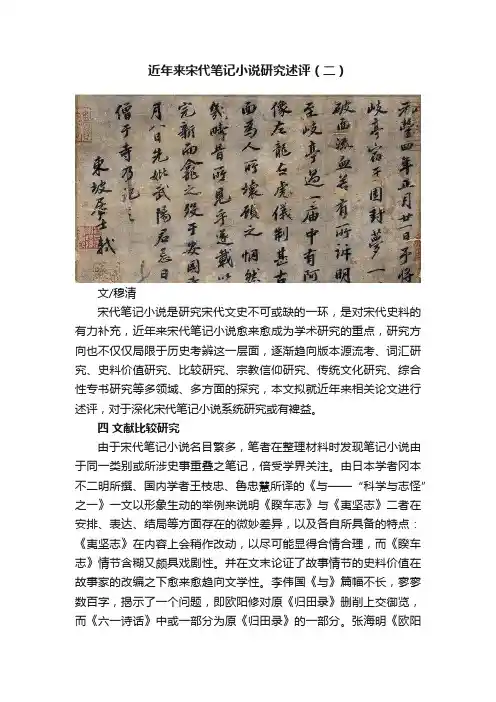 近年来宋代笔记小说研究述评（二）
元豐四年正月廿一日予將
岐亭宿于團封夢一
破面流血若有所訴明
至岐亭過一廟中有阿
像左龍右虎儀制甚古
面為人所壞顧之惘然
幾疇昔所見乎遂載以
完新而龕之設于安國
月八日先妣武陽君忌日
僧于寺乃記之
東坡居士軾
文/穆清
宋代笔记小说是研究宋代文史不可或缺的一环，是对宋代史料的
有力补充，近年来宋代笔记小说愈来愈成为学术研究的重点，研究方
向也不仅仅局限于历史考辨这一层面，逐渐趋向版本源流考、词汇研
究、史料价值研究、比较研究、宗教信仰研究、传统文化研究、综合
性专书研究等多领域、多方面的探究，本文拟就近年来相关论文进行
述评，对于深化宋代笔记小说系统研究或有裨益。
四 文献比较研究
由于宋代笔记小说名目繁多，笔者在整理材料时发现笔记小说由
于同一类别或所涉史事重叠之笔记，倍受学界关注。由日本学者冈本
不二明所撰、国内学者王枝忠、鲁忠慧所译的《与——“科学与志怪”
之一》一文以形象生动的举例来说明《睽车志》与《夷坚志》二者在
安排、表达、结局等方面存在的微妙差异，以及各自所具备的特点：
《夷坚志》在内容上会稍作改动，以尽可能显得合情合理，而《睽车
志》情节含糊又颇具戏剧性。并在文末论证了故事情节的史料价值在
故事家的改编之下愈来愈趋向文学性。李伟国《与》篇幅不长，寥寥
数百字，揭示了一个问题，即欧阳修对原《归田录》删削上交御览，
而《六一诗话》中或一部分为原《归田录》的一部分。张海明《欧阳